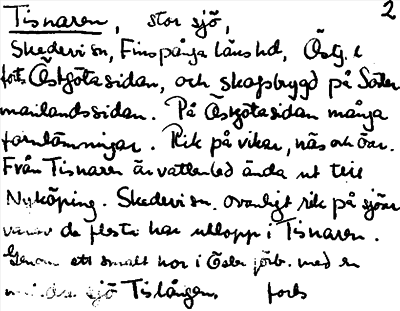 Tisnaren, stor sjö, 2
Skedevi sn, Finspånga länshd, Östg. l
forts Östgötasidan, och skogsbygd på Söder
manlandssidan. På Östgötasidan många
fornlämningar. Rik på vikar, näs och öar.
Från Tisnaren är vattenled ända ut till
Nyköping. Skedevi sn. ovanligt rik på sjöar
varav de flesta har utlopp i Tisnaren.
Genom ett smalt nor i förb. med en
sjö Tislången forts